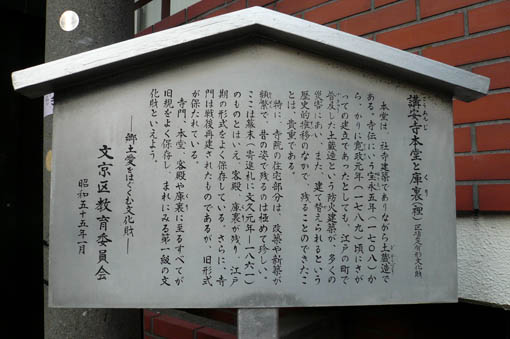 講安寺本堂と庫裏(裡) 区指定有形文化財
こうあんじ くり
本堂は、社寺建築でありながら土蔵造で
ある。寺伝にいう宝永五年(一七〇八)か
ら、かりに寛政元年(一七八九)頃にさが
っての建立であったとしても、江戸の町で
普及した土蔵造という防火建築が、多くの
災害にあい、また、建て替えられるという
歴史的推移のなかで、残ることのできたこ
とは、貴重である。
特に、寺院の住宅部分は、改築や新築が
頻繁で、昔の姿で残るのは極めて珍しい。
ここは幕末(寄進札に文久元年―一八六一)
のものとはいえ、客殿、庫裏が残り、江戸
期の形式をよく保存している。さらに、寺
門は戦後再建されたものであるが、旧形式
が保たれている。
寺門、本堂、客殿や庫裏に至るすべてが
旧規をよく保存し、まれにみる第一級の文
化財といえよう。
―郷土愛をはぐくむ文化財―
文京区教育委員会
昭和五十五年一月